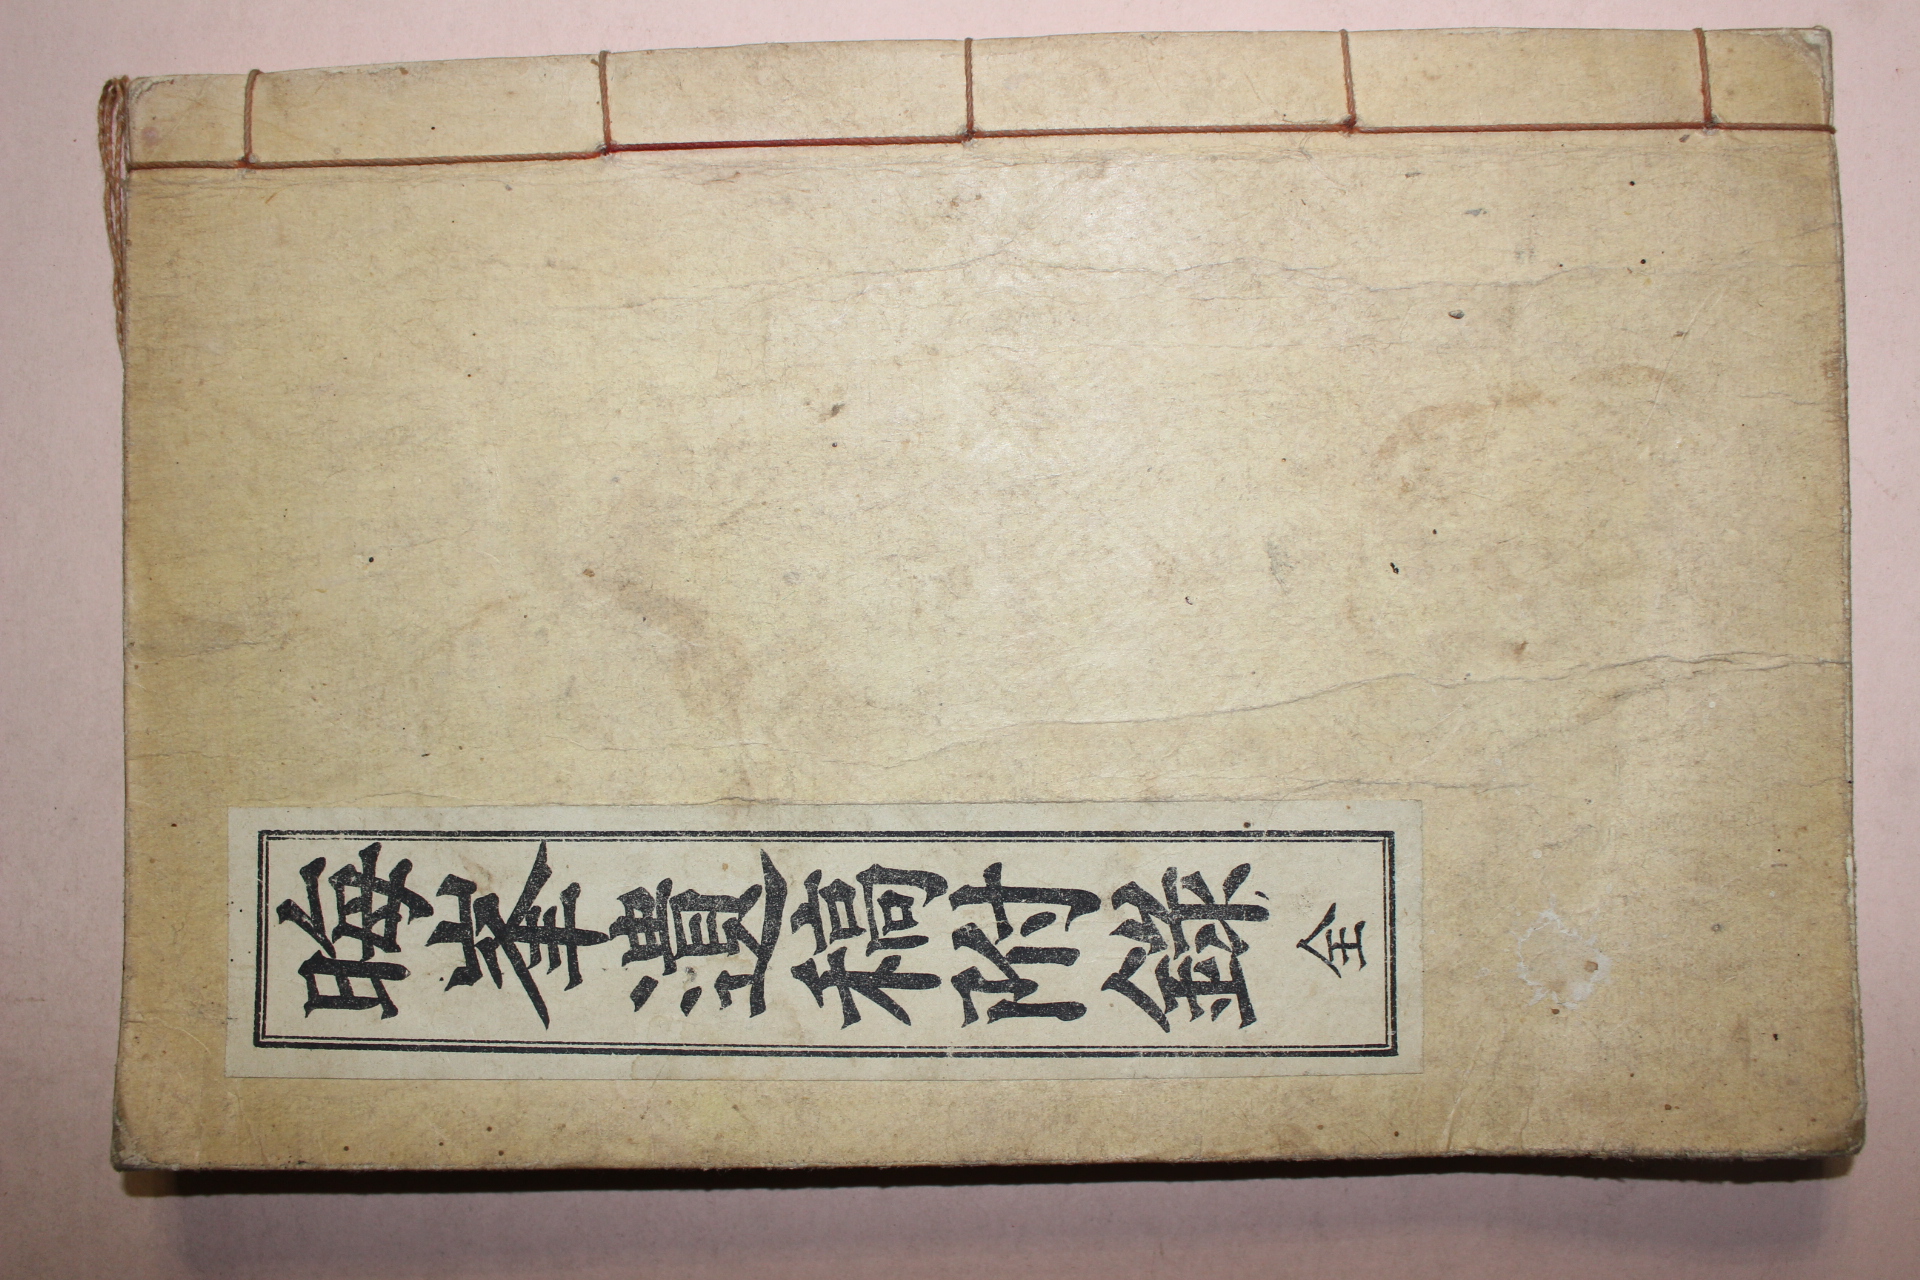 晦峯遺稿附錄 全